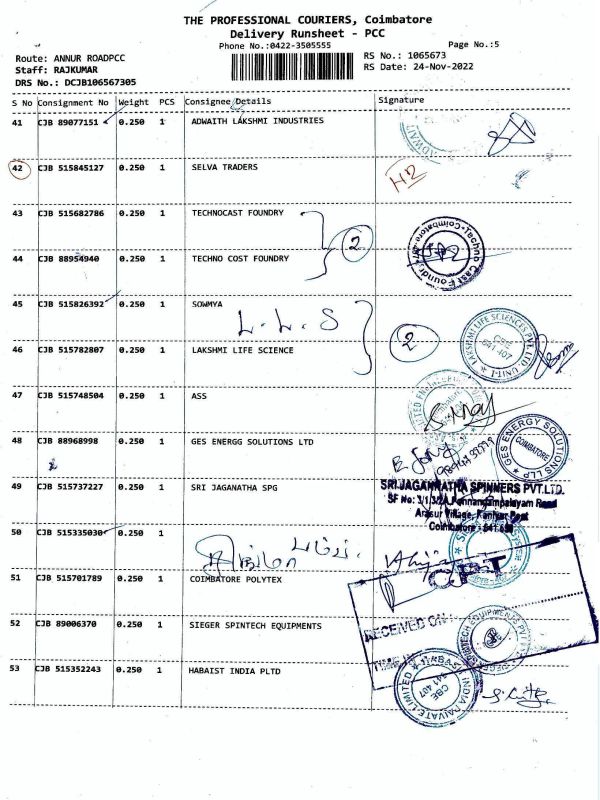 THE PROFESSIONAL COURIERS, Coimbatore
Delivery Runsheet - PCC
Phone No.:0422-3505555
Page No.:5
Route: ANNUR ROADPCC
RS No.: 1065673
Staff: RAJKUMAR
RS Date: 24-Nov-2022
DRS No.: DCJB106567305
S No Consignment No Weight PCS Consignee Details Signature
41 CJB 89077151 0.250 1 ADWAITH LAKSHMI INDUSTRIES
42 CJB 515845127 0.250 1 SELVA TRADERS
43 CJB 515682786 0.250 1 TECHNOCAST FOUNDRY
2
44 CJB 88954940 0.250 1 TECHNO COST FOUNDRY
45 CJB 515826392 0.250 1 SOWMYA
L.L.S
2
LAKSHMI LIFE SCIENCES PVT. LTD. UNIT-1
CBE
641 407
46 CJB 515782807 0.250 1 LAKSHMI LIFE SCIENCE
47 CJB 515748504 0.250 1 ASS
48 CJB 88968998 0.250 1 GES ENERGG SOLUTIONS LTD
GES ENERGY SOLUTIONS LLP
COIMBATORE
49 CJB 515737227 0.250 1 SRI JAGANATHA SPG
SRI JAGANNATHA SPINNERS PVT.LTD.
50 CJB 515335030 0.250 1
51 CJB 515701789 0.250 1 COIMBATORE POLYTEX
RECEIVED ON
52 CJB 89006370 0.250 1 SIEGER SPINTECH EQUIPMENTS
53 CJB 515352243 0.250 1 HABAIST INDIA PLTD
CBE
641 407